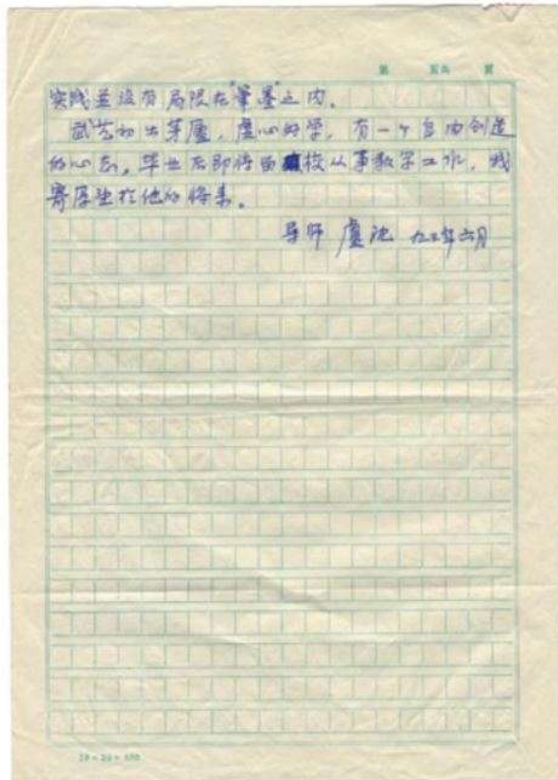 第 页共 页
实践並没有局限在"筆墨"之内。
武艺初出茅廬，虚心好学，有一个自由创造
的心态，毕业后即将留校从事教学工作，我
寄厚望於他的将来。
导师 盧沉 九三年六月
20×20=400